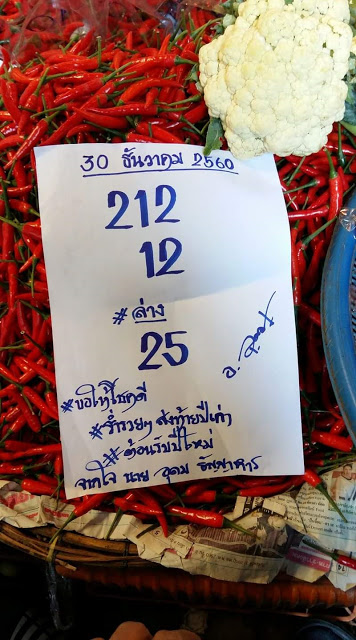 30 ธันวาคม 2560
212
12
* ล่าง
25
อ.
* ขอให้โชคดี
* ร่ำรวยๆ ส่งท้ายปีเก่า
* ต้อนรับปีใหม่
จากใจ นาย อุดม ธัญญาหาร